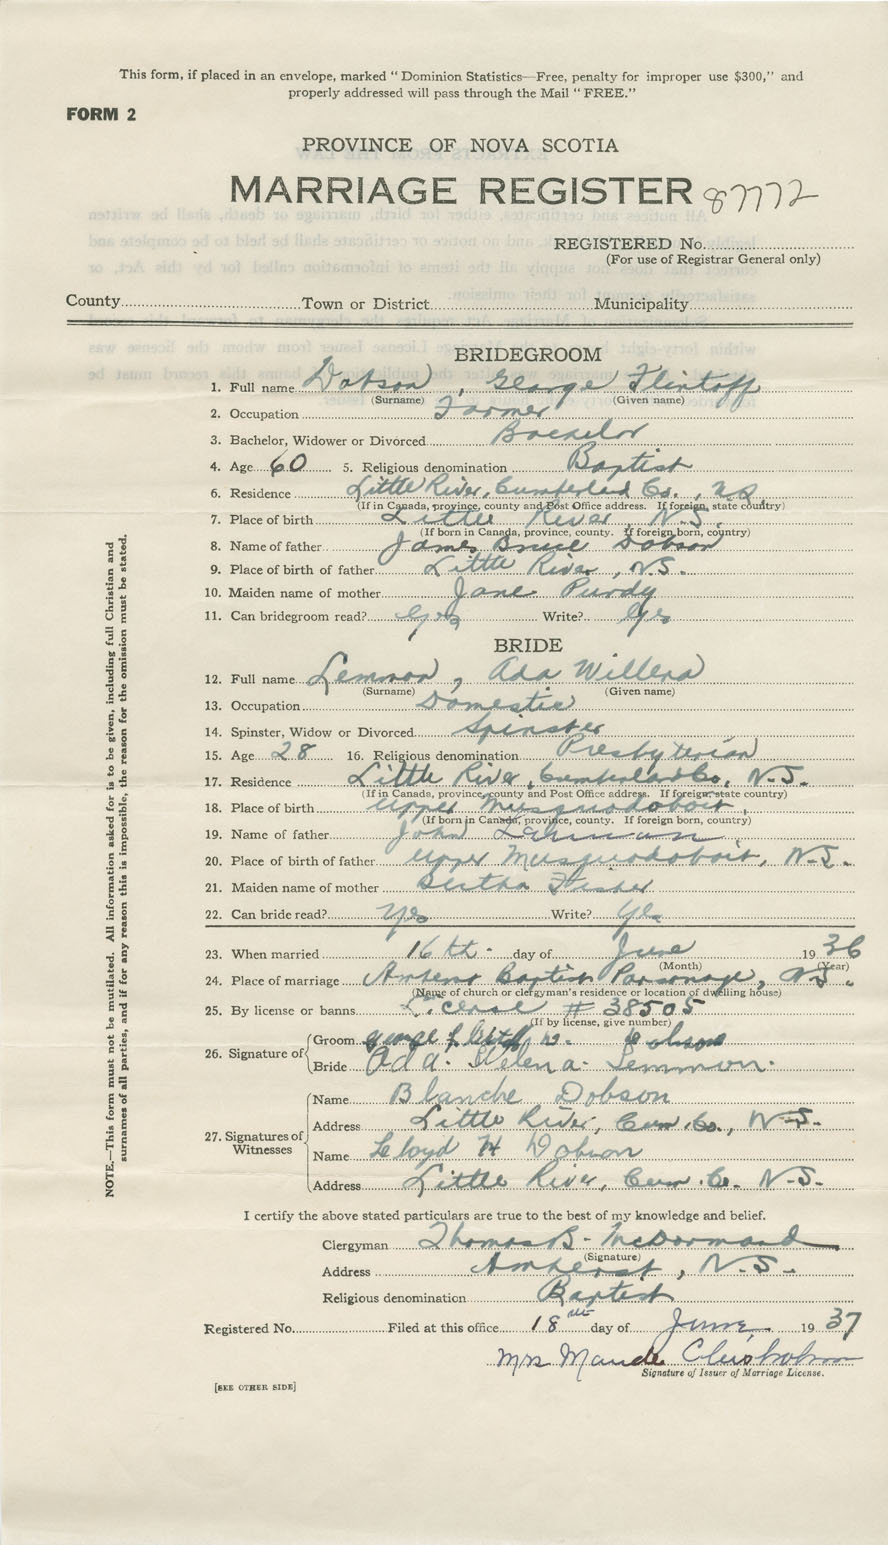 This form, if placed in an envelope, marked " Dominion Statistics—Free, penalty for improper use $300," and
properly addressed will pass through the Mail " FREE."
FORM 2
PROVINCE OF NOVA SCOTIA
MARRIAGE REGISTER 87772
REGISTERED No.
(For use of Registrar General only)
County Town or District Municipality
BRIDEGROOM
1. Full name Dobson, George Flintoff
(Surname) (Given name)
2. Occupation Farmer
3. Bachelor, Widower or Divorced Bachelor
4. Age 60 5. Religious denomination Baptist
6. Residence Little River, Cumberland Co., N.S.
(If in Canada, province, county and Post Office address. If foreign, state country)
7. Place of birth Little River, N.S.
(If born in Canada, province, county. If foreign born, country)
8. Name of father James Bruce Dobson
9. Place of birth of father Little River, N.S.
10. Maiden name of mother Jane Purdy
11. Can bridegroom read? Yes Write? Yes
BRIDE
12. Full name Lemmon, Ada Willena
(Surname) (Given name)
13. Occupation Domestic
14. Spinster, Widow or Divorced Spinster
15. Age 28 16. Religious denomination Presbyterian
17. Residence Little River, Cumberland Co, N.S.
(If in Canada, province, county and Post Office address. If foreign, state country)
18. Place of birth Upper Musquodoboit,
(If born in Canada, province, county. If foreign born, country)
19. Name of father John
20. Place of birth of father Upper Musquodoboit, N.S.
21. Maiden name of mother Bertha Fisher
22. Can bride read? Yes Write? Yes
23. When married 16th day of June 1936
(Month) (Year)
24. Place of marriage Amherst Baptist Parsonage, N.S.
(Name of church or clergyman's residence or location of dwelling house)
25. By license or banns License # 38505
(If by license, give number)
26. Signature of
Groom George Dobson
Bride Ada. Helena. Lemmon.
27. Signatures of Witnesses
Name Blanche Dobson
Address Little River, Cum. Co., N.S.
Name Lloyd H Dobson
Address Little River, Cum. Co. N.S.
I certify the above stated particulars are true to the best of my knowledge and belief.
Clergyman Thomas B. McDormand
(Signature)
Address Amherst, N.S.
Religious denomination Baptist
Registered No. Filed at this office 18th day of June 1937
Mrs Maude Chisholm
Signature of Issuer of Marriage License.
[SEE OTHER SIDE]
NOTE.—This form must not be mutilated. All information asked for is to be given, including full Christian and
surnames of all parties, and if for any reason this is impossible, the reason for the omission must be stated.